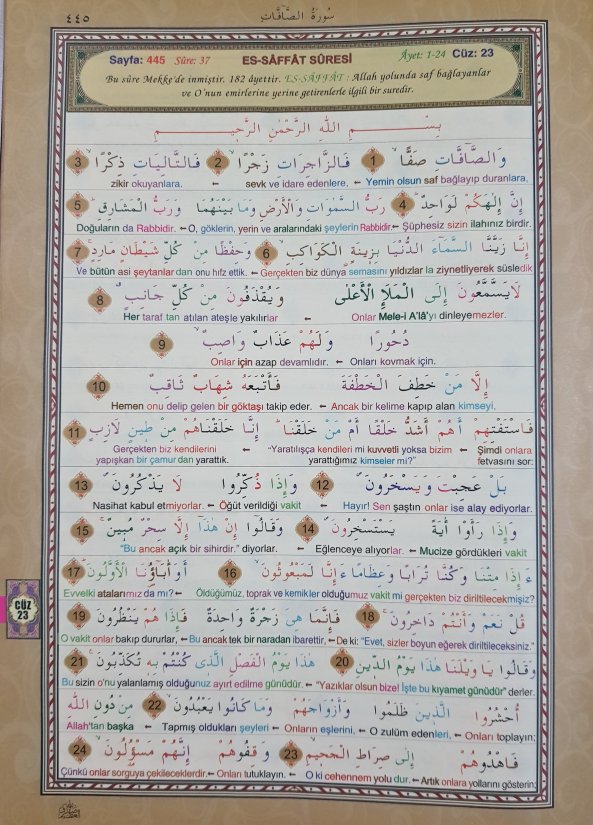 ٤٤٥ سُورَةُ الصَّافَّاتِ
Sayfa: 445 Sûre: 37 ES-SÂFFÂT SÛRESİ Âyet: 1-24 Cüz: 23
Bu sûre Mekke'de inmiştir. 182 âyettir. ES-SÂFFÂT : Allah yolunda saf bağlayanlar
ve O'nun emirlerine yerine getirenlerle ilgili bir suredir.
بِسْمِ اللهِ الرَّحْمٰنِ الرَّحِيمِ
وَالصَّافَّاتِ صَفًّا 1 فَالزَّاجِرَاتِ زَجْرًا 2 فَالتَّالِيَاتِ ذِكْرًا 3
Yemin olsun saf bağlayıp duranlara, ← sevk ve idare edenlere, ← zikir okuyanlara.
إِنَّ إِلٰهَكُمْ لَوَاحِدٌ 4 رَبُّ السَّمٰوَاتِ وَالْأَرْضِ وَمَا بَيْنَهُمَا وَرَبُّ الْمَشَارِقِ 5
Şüphesiz sizin ilahınız birdir. ← O, göklerin, yerin ve aralarındaki şeylerin Rabbidir. ← Doğuların da Rabbidir.
إِنَّا زَيَّنَّا السَّمَآءَ الدُّنْيَا بِزِينَةٍ الْكَوَاكِبِ 6 وَحِفْظًا مِنْ كُلِّ شَيْطَانٍ مَارِدٍ 7
Gerçekten biz dünya semasını yıldızlar la ziynetliyerek süsledik ← Ve bütün asi şeytanlar dan onu hıfz ettik.
لَا يَسَّمَّعُونَ إِلَى الْمَلَإِ الْأَعْلٰى وَيُقْذَفُونَ مِنْ كُلِّ جَانِبٍ 8
Onlar Mele-i A'lâ'yı dinleyemezler. ← Her taraf tan atılan ateşle yakılırlar
دُحُورًا وَلَهُمْ عَذَابٌ وَاصِبٌ 9
Onları kovmak için. ← Onlar için azap devamlıdır.
إِلَّا مَنْ خَطِفَ الْخَطْفَةَ فَأَتْبَعَهُ شِهَابٌ ثَاقِبٌ 10
Ancak bir kelime kapıp alan kimseyi, ← Hemen onu delip gelen bir göktaşı takip eder.
فَاسْتَفْتِهِمْ أَهُمْ أَشَدُّ خَلْقًا أَمْ مَنْ خَلَقْنَا إِنَّا خَلَقْنَاهُمْ مِنْ طِينٍ لَازِبٍ 11
Şimdi onlara ← "Yaratılışça kendileri mi kuvvetli yoksa bizim ← Gerçekten biz kendilerini
fetvasını sor: yarattığımız kimseler mi?" yapışkan bir çamur dan yarattık.
بَلْ عَجِبْتَ وَيَسْخَرُونَ 12 وَإِذَا ذُكِّرُوا لَا يَذْكُرُونَ 13
Hayır! Sen şaştın onlar ise alay ediyorlar. ← Öğüt verildiği vakit ← Nasihat kabul etmiyorlar.
وَإِذَا رَأَوْا اٰيَةً يَسْتَسْخِرُونَ 14 وَقَالُوا إِنْ هٰذَا إِلَّا سِحْرٌ مُبِينٌ 15
Mucize gördükleri vakit ← Eğlenceye alıyorlar. ← "Bu ancak açık bir sihirdir." diyorlar.
ءَإِذَا مِتْنَا وَكُنَّا تُرَابًا وَعِظَامًا ءَإِنَّا لَمَبْعُوثُونَ 16 أَوَ اٰبَآؤُنَا الْأَوَّلُونَ 17
Öldüğümüz, toprak ve kemikler olduğumuz vakit mi gerçekten biz diriltilecekmişiz? ← Evvelki atalarımız da mı?
قُلْ نَعَمْ وَأَنْتُمْ دَاخِرُونَ 18 فَإِنَّمَا هِيَ زَجْرَةٌ وَاحِدَةٌ فَإِذَا هُمْ يَنْظُرُونَ 19
De ki: "Evet, sizler boyun eğerek diriltileceksiniz." ← Bu ancak tek bir naradan ibarettir, ← O vakit onlar bakıp dururlar,
وَقَالُوا يَا وَيْلَنَا هٰذَا يَوْمُ الدِّينِ 20 هٰذَا يَوْمُ الْفَصْلِ الَّذِى كُنْتُمْ بِهِ تُكَذِّبُونَ 21
"Yazıklar olsun bize! İşte bu kıyamet günüdür" derler. ← Bu sizin o'nu yalanlamış olduğunuz ayırt edilme günüdür.
أُحْشُرُوا الَّذِينَ ظَلَمُوا وَأَزْوَاجَهُمْ وَمَا كَانُوا يَعْبُدُونَ 22 مِنْ دُونِ اللهِ
Onları toplayın; ← O zulüm edenleri, ← Onların eşlerini, ← Tapmış oldukları şeyleri ← Allah'tan başka
فَاهْدُوهُمْ إِلٰى صِرَاطِ الْجَحِيمِ 23 وَقِفُوهُمْ إِنَّهُمْ مَسْؤُلُونَ 24
Artık onlara yollarını gösterin; ← O ki cehennem yolu dur. ← Onları tutuklayın. ← Çünkü onlar sorguya çekileceklerdir.
CÜZ
23
٤٤٥